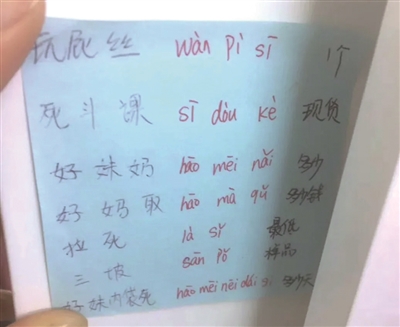 玩屁丝 wàn pì sī 1个
死斗课 sǐ dòu kè 现货
好妹奶 hāo mēi nǎi 多少
好妈取 hāo mà qǔ 多少钱
拉死 lā sǐ 最低
三坡 sān pǒ 样品
好妹内袋死 hāo mēi nèi dài sǐ 多少天